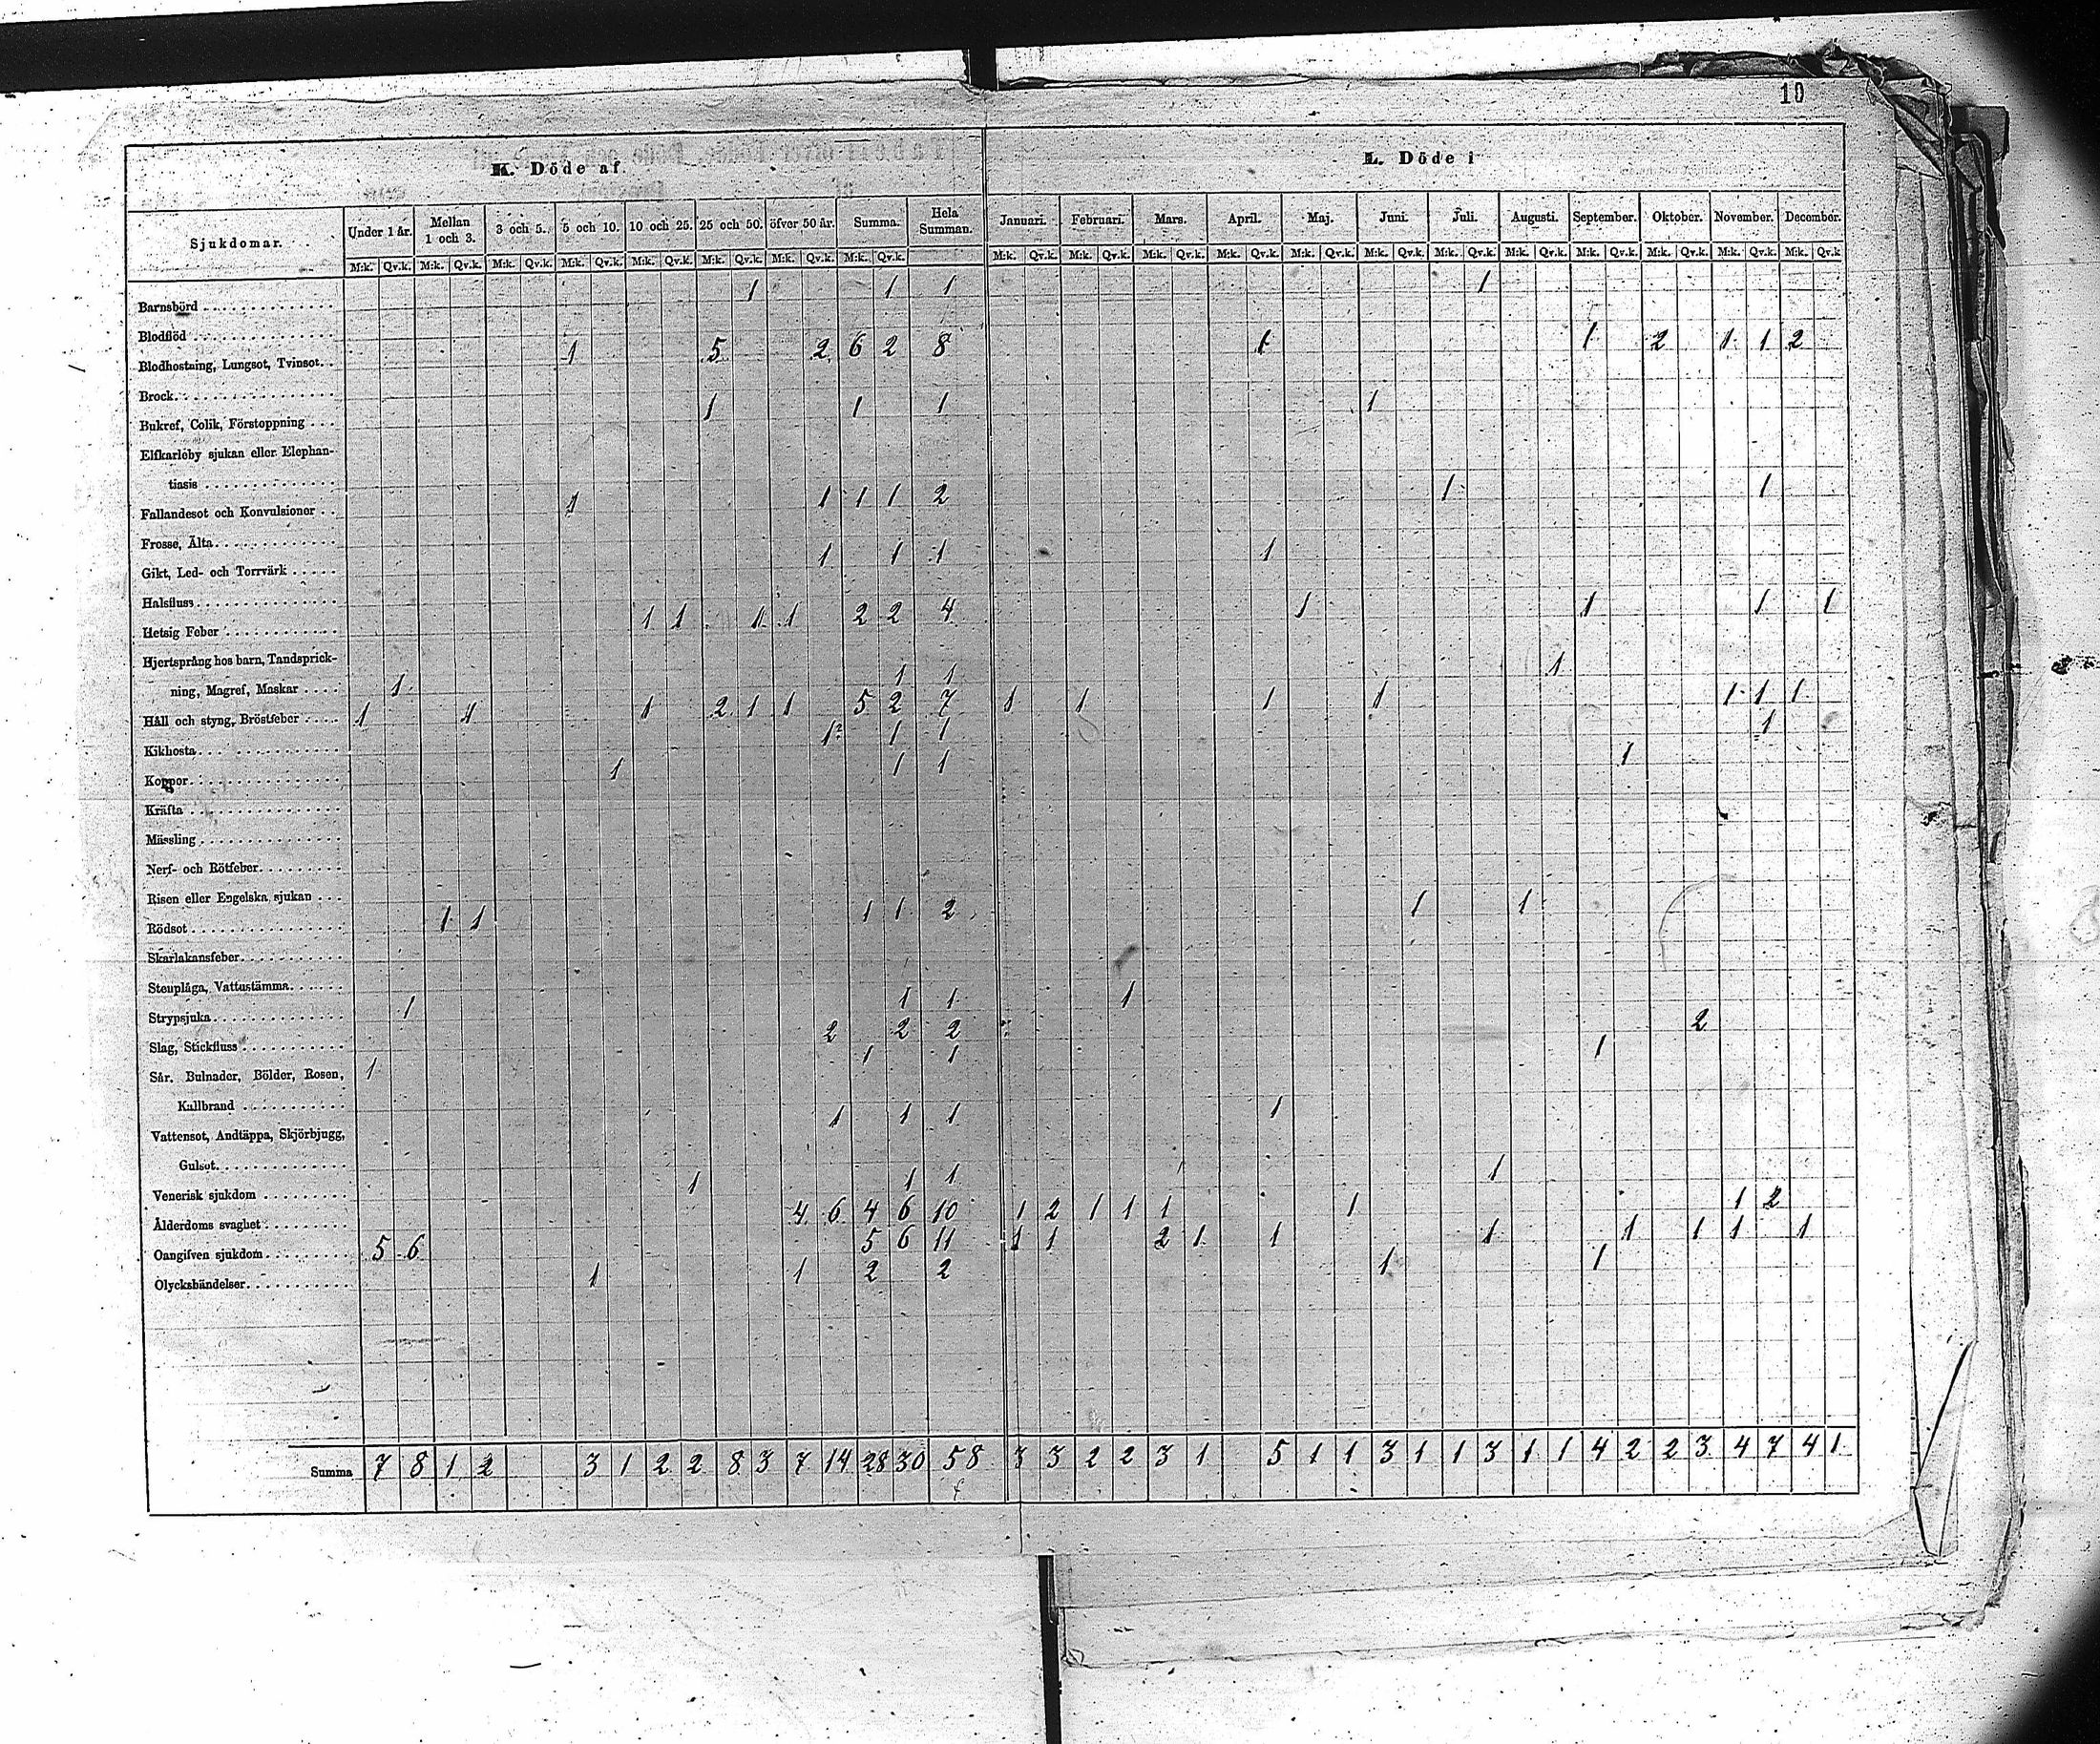 10
K. Döde af.
L. Döde i
Sjukdomar. Under 1 år. Mellan 1 och 3. 3 och 5. 5 och 10. 10 och 25. 25 och 50. öfver 50 år. Summa. Hela Summan. Januari. Februari. Mars. April. Maj. Juni. Juli. Augusti. September. Oktober. November. December.
M:k. Qv.k. M:k. Qv.k. M:k. Qv.k. M:k. Qv.k. M:k. Qv.k. M:k. Qv.k. M:k. Qv.k. M:k. Qv.k. M:k. Qv.k. M:k. Qv.k. M:k. Qv.k. M:k. Qv.k. M:k. Qv.k. M:k. Qv.k. M:k. Qv.k. M:k. Qv.k. M:k. Qv.k. M:k. Qv.k. M:k. Qv.k. M:k. Qv.k
Barnsbörd 1 1 1 1
Blodflöd
Blodhostning, Lungsot, Tvinsot. 1 5 2 6 2 8 1 1 2 1 1 2
Brock
Bukref, Colik, Förstoppning 1 1 1 1
Elfkarleby sjukan eller Elephan-
tiasis
Fallandesot och Konvulsioner 1 1 1 1 2 1 1
Frosse, Älta
Gikt, Led- och Torrvärk 1 1 1 1
Halsfluss
Hetsig Feber 1 1 1 1 2 2 4 1 1 1 1
Hjertsprång hos barn, Tandsprick-
ning, Magref, Maskar 1 1 1 1
Håll och styng, Bröstfeber 1 1 1 2 1 1 5 2 7 1 1 1 1 1 1 1
Kikhosta 1 1 1 1
Koppor 1 1 1 1
Kräfta
Mässling
Nerf- och Rötfeber
Risen eller Engelska sjukan
Rödsot 1 1 1 1 2 1 1
Skarlakansfeber
Stenplåga, Vattustämma
Strypsjuka 1 1 1 1
Slag, Stickfluss 2 2 2 2
Sår. Bulnader, Bölder, Rosen, 1 1 1 1
Kallbrand
Vattensot, Andtäppa, Skjörbjugg, 1 1 1 1
Gulsot
Venerisk sjukdom 1 1 1 1
Ålderdoms svaghet 4 6 4 6 10 1 2 1 1 1 1 1 2
Oangifven sjukdom 5 6 5 6 11 1 1 2 1 1 1 1 1 1 1
Olyckshändelser 1 1 2 2 1 1
Summa 7 8 1 2 3 1 2 2 8 3 7 14 28 30 58 3 3 2 2 3 1 5 1 1 3 1 1 3 1 1 4 2 2 3 4 7 4 1